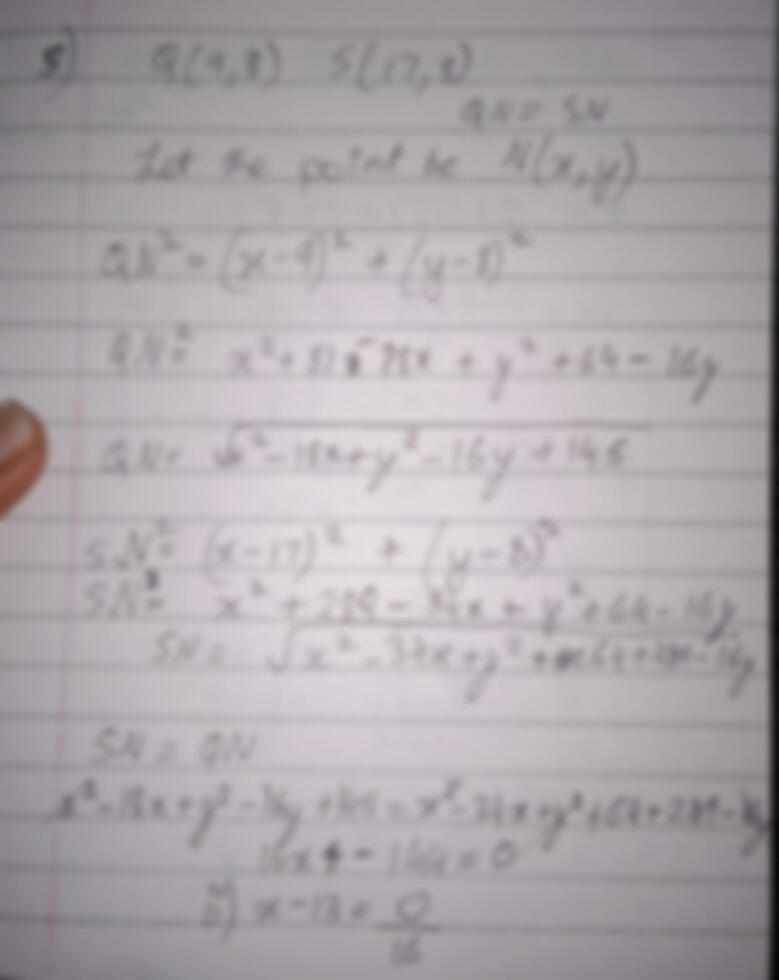 5) Q(9,8) S(17,8)
QN = SN
Let the point be N(x,y)
QN² = (x-9)² + (y-8)²
QN² = x² + 81 - 18x + y² + 64 - 16y
QN = √x²-18x+y²-16y+145
SN² = (x-17)² + (y-8)²
SN² = x² + 289 - 34x + y² + 64 - 16y
SN = √x²-34x+y²+64+289-16y
SN = QN
x²-18x+y²-16y+145 = x²-34x+y²+64+289-16y
16x - 144 = 0
x-13 = 0/16